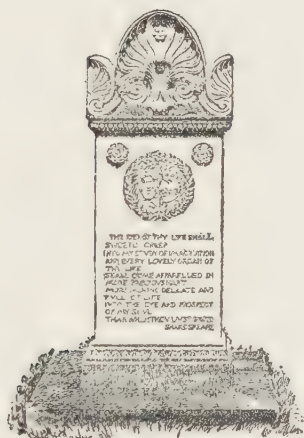 THE IDEA OF THY LIFE SHALL
SWEETLY CREEP
INTO MY STUDY OF IMAGINATION
AND EVERY LOVELY ORGAN OF
THY LIFE
SHALL COME APPARELLED IN
MORE PRECIOUS HABIT
MORE MOVING DELICATE AND
FULL OF LIFE
INTO THE EYE AND PROSPECT
OF MY SOUL
THAN
SHAKESPEARE